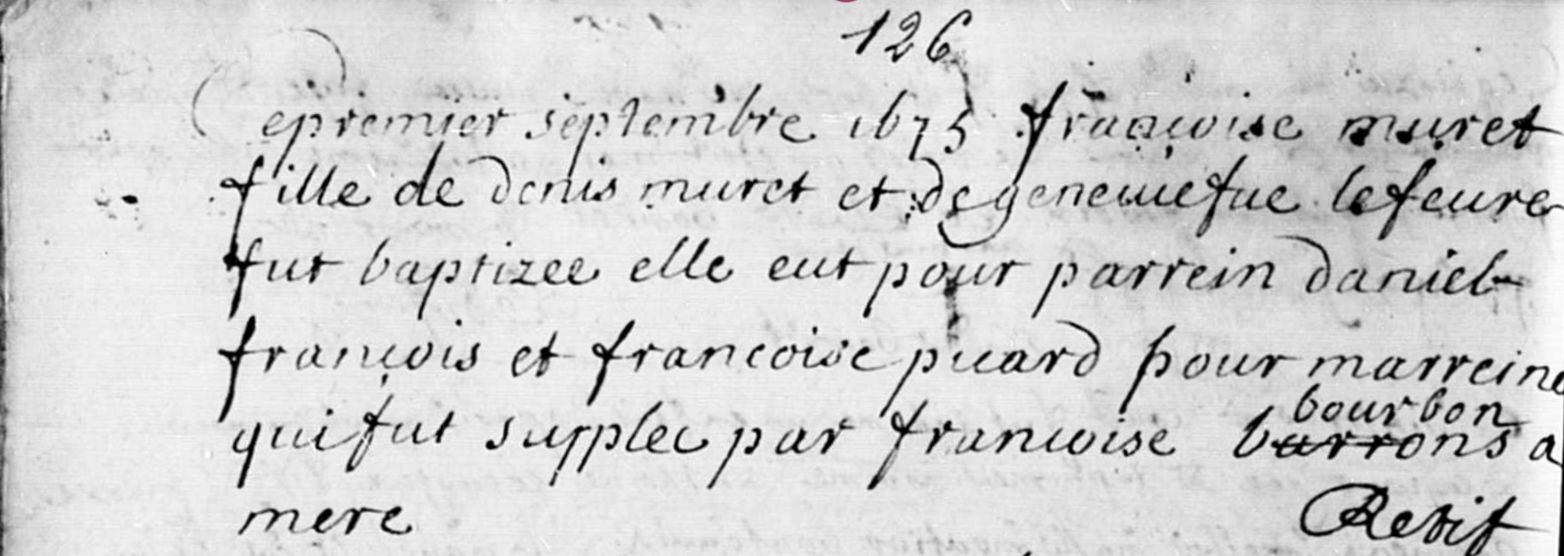 126
Le premier septembre 1675 françoise muret
fille de denis muret et de geneuiefue lefeure
fut baptizee elle eut pour parrein daniel
françois et francoise picard pour marreine
bourbon
qui fut supplee par francoise barrons a
mere
Retif